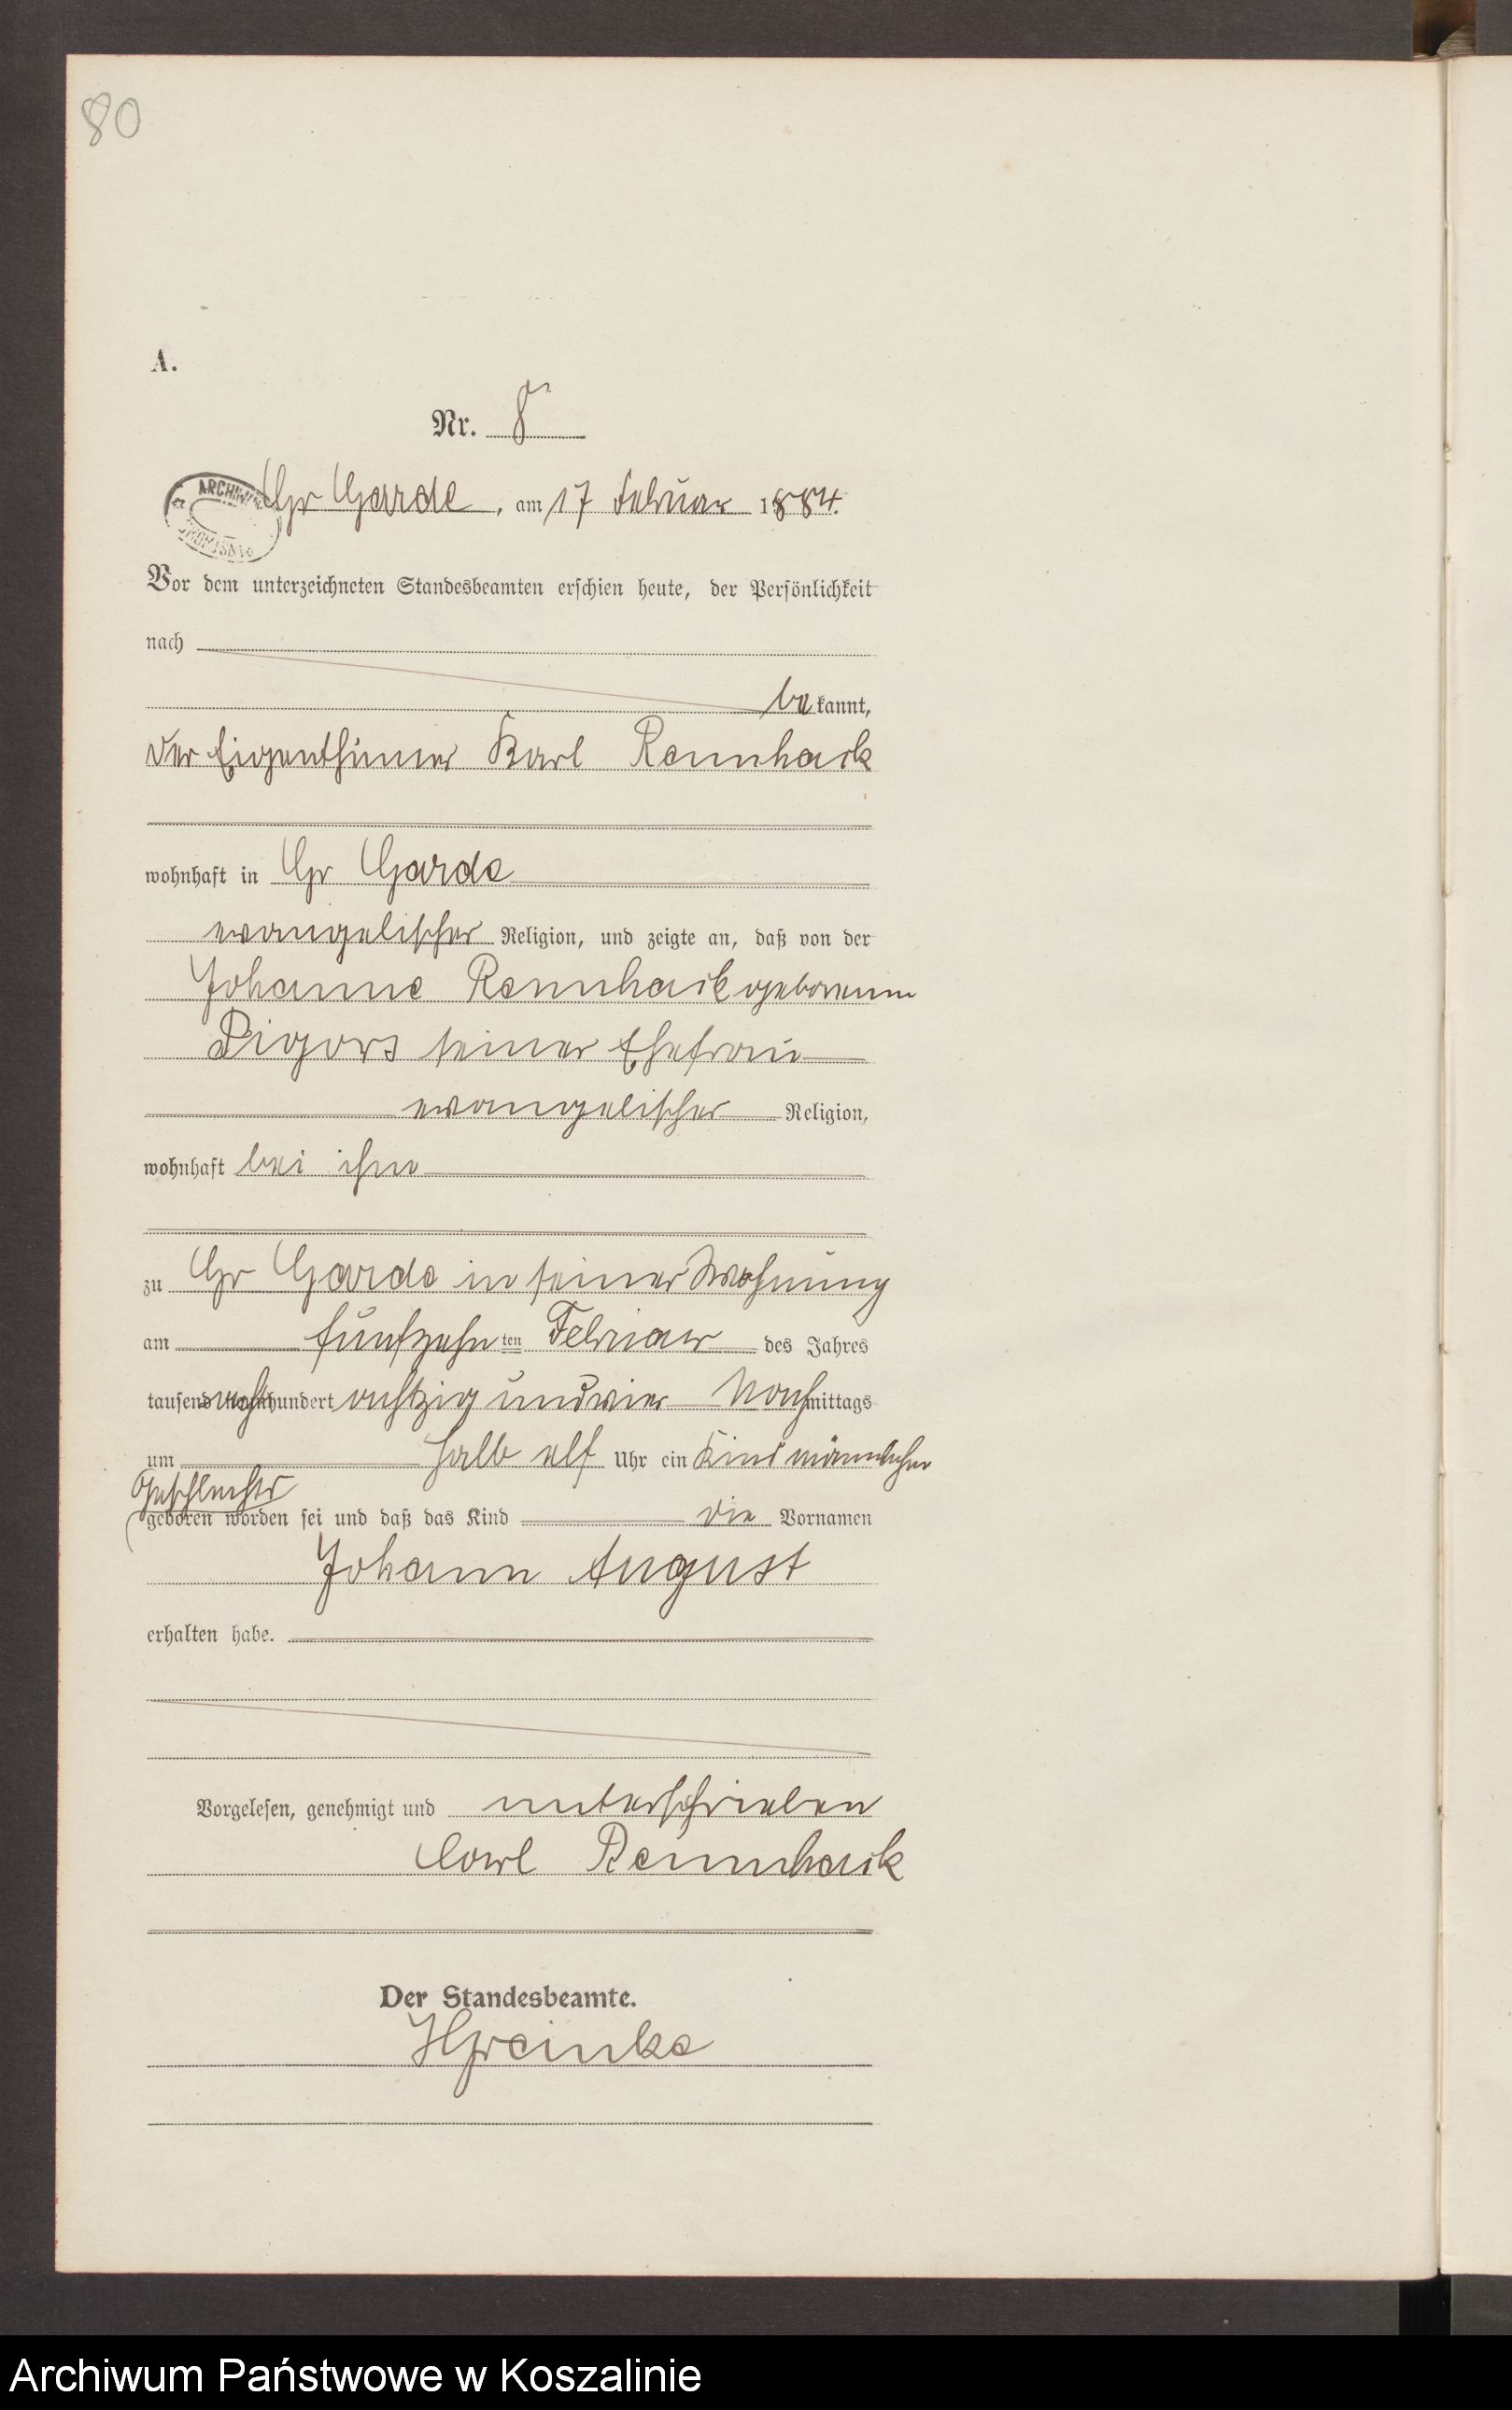 80
A.
Nr. 8
ARCHIWUM
Gr Garde, am 17 Februar 1884.
Vor dem unterzeichneten Standesbeamten erschien heute, der Persönlichkeit
nach
bekannt,
der Eigenthümer Karl Rennhack
wohnhaft in Gr Garde
evangelischer Religion, und zeigte an, daß von der
Johanne Rennhack geborenen
Pigors seiner Ehefrau
evangelischer Religion,
wohnhaft bei ihm
zu Gr Garde in seiner Wohnung
am fünfzehnten Februar des Jahres
tausend achthundert achtzig und vier Nachmittags
um halb elf Uhr ein Kind männlichen
Geschlechts
geboren worden sei und daß das Kind die Vornamen
Johann August
erhalten habe.
Vorgelesen, genehmigt und unterschrieben
Carl Rennhack
Der Standesbeamte.
Archiwum Państwowe w Koszalinie